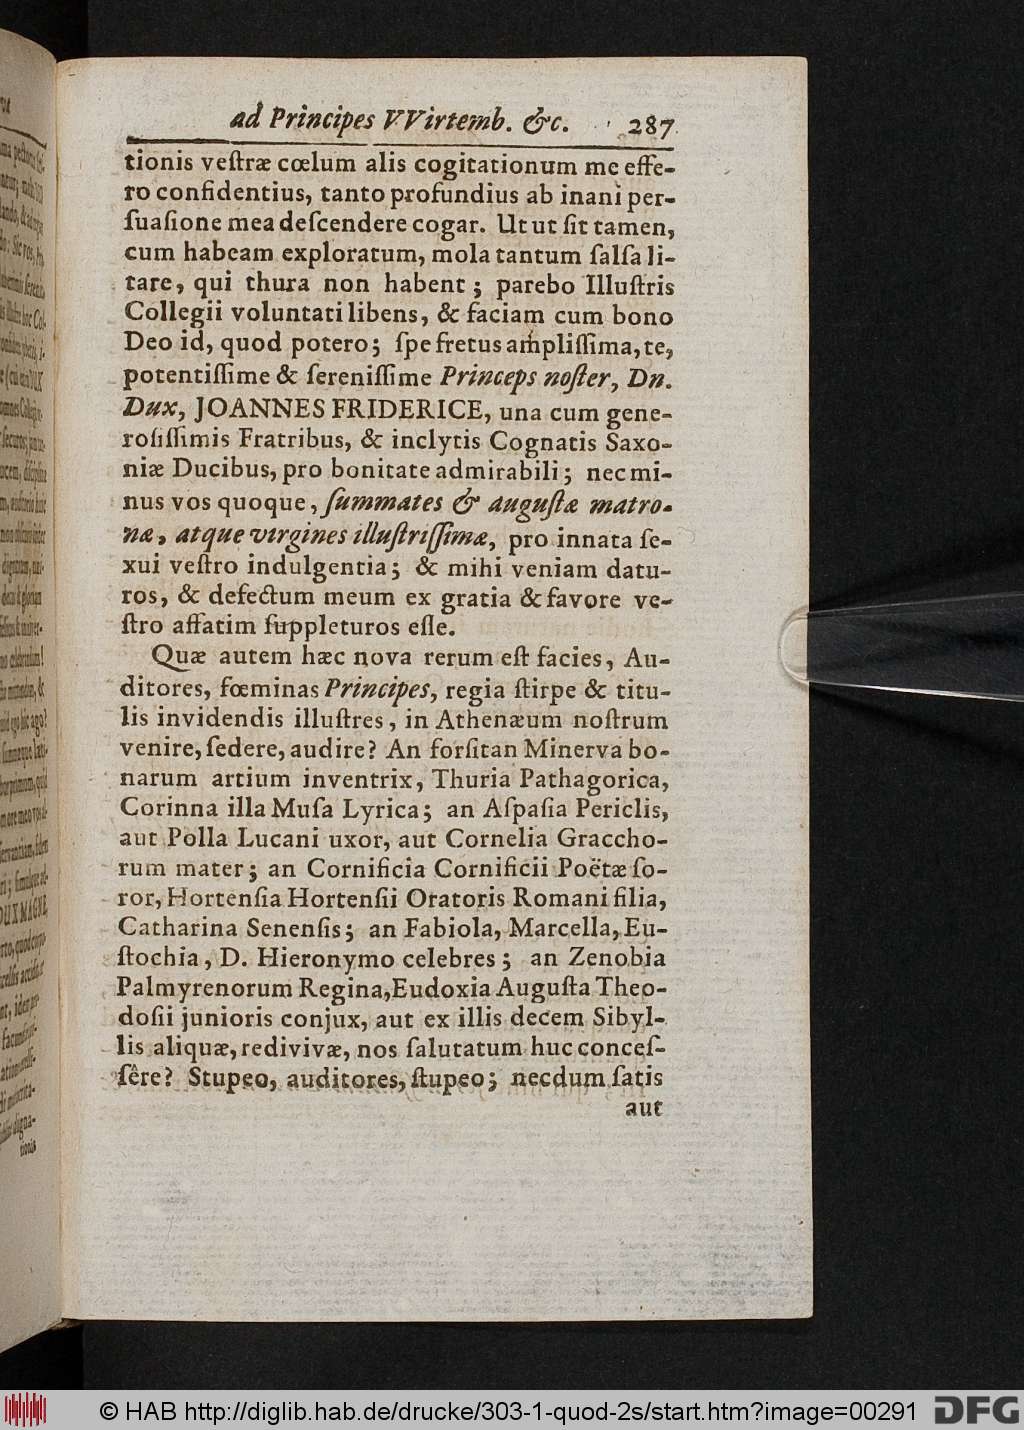 ad Principes VVirtemb. &c. 287
tionis veſtræ cœlum alis cogitationum me effe-
ro confidentius, tanto profundius ab inani per-
ſuaſione mea deſcendere cogar. Ut ut ſit tamen,
cum habeam exploratum, mola tantum ſalſa li-
tare, qui thura non habent; parebo Illuſtris
Collegii voluntati libens, & faciam cum bono
Deo id, quod potero; ſpe fretus ampliſſima, te,
potentiſſime & ſereniſſime Princeps noſter, Dn.
Dux, JOANNES FRIDERICE, una cum gene-
roſiſſimis Fratribus, & inclytis Cognatis Saxo-
niæ Ducibus, pro bonitate admirabili; nec mi-
nus vos quoque, ſummates & auguſtæ matro-
næ, atque virgines illuſtriſſimæ, pro innata ſe-
xui veſtro indulgentia; & mihi veniam datu-
ros, & defectum meum ex gratia & favore ve-
ſtro affatim ſuppleturos eſſe.
Quæ autem hæc nova rerum eſt facies, Au-
ditores, fœminas Principes, regia ſtirpe & titu-
lis invidendis illuſtres, in Athenæum noſtrum
venire, ſedere, audire? An forſitan Minerva bo-
narum artium inventrix, Thuria Pathagorica,
Corinna illa Muſa Lyrica; an Aſpaſia Periclis,
aut Polla Lucani uxor, aut Cornelia Graccho-
rum mater; an Cornificia Cornificii Poëtæ ſo-
ror, Hortenſia Hortenſii Oratoris Romani filia,
Catharina Senenſis; an Fabiola, Marcella, Eu-
ſtochia, D. Hieronymo celebres; an Zenobia
Palmyrenorum Regina, Eudoxia Auguſta Theo-
doſii junioris conjux, aut ex illis decem Sibyl-
lis aliquæ, redivivæ, nos ſalutatum huc conceſ-
ſêre? Stupeo, auditores, ſtupeo; necdum ſatis
aut
© HAB http://diglib.hab.de/drucke/303-1-quod-2s/start.htm?image=00291
DFG